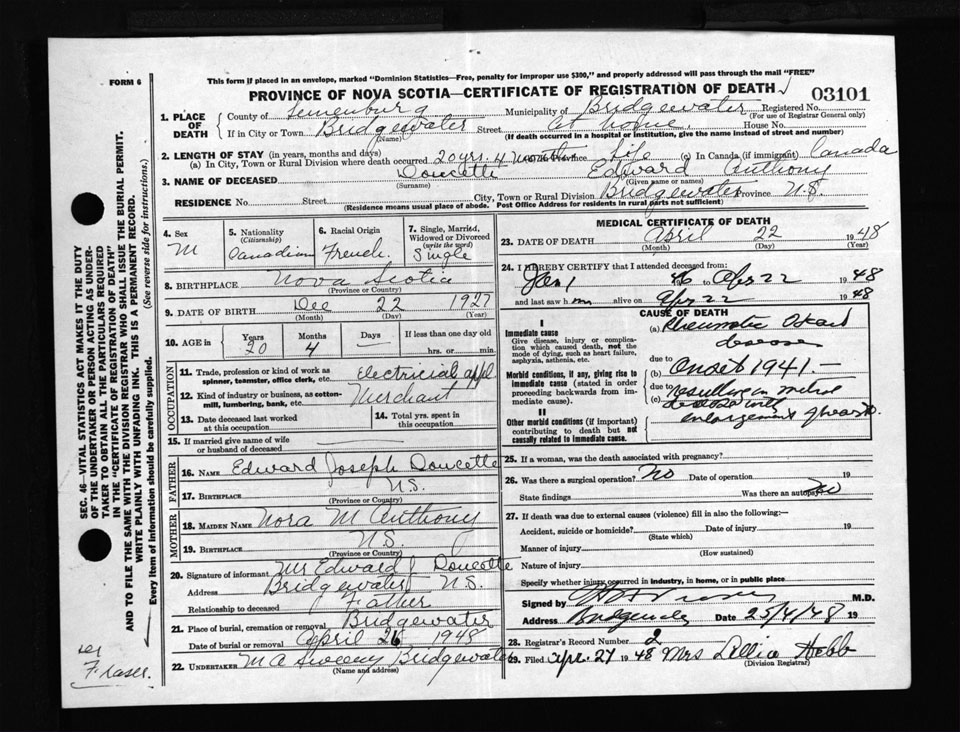 FORM 6
This form if placed in an envelope, marked "Dominion Statistics—Free, penalty for improper use $300," and properly addressed will pass through the mail "FREE"
PROVINCE OF NOVA SCOTIA—CERTIFICATE OF REGISTRATION OF DEATH
03101
1. PLACE OF DEATH
County of Lunenburg Municipality of Bridgewater Registered No.
(For use of Registrar General only)
If in City or Town Bridgewater Street At home House No.
(Name) (If death occurred in a hospital or institution, give the name instead of street and number)
2. LENGTH OF STAY (in years, months and days)
(a) In City, Town or Rural Division where death occurred 20 yrs. 4 months Province Life (c) In Canada (if immigrant) Canada
3. NAME OF DECEASED Doucette Edward Anthony
(Surname) (Given name or names)
RESIDENCE No. Street City, Town or Rural Division Bridgewater Province N.S.
(Residence means usual place of abode. Post Office Address for residents in rural parts not sufficient)
4. Sex
M
5. Nationality
(Citizenship)
Canadian
6. Racial Origin
French
7. Single, Married, Widowed or Divorced
(write the word)
Single
8. BIRTHPLACE Nova Scotia
(Province or Country)
9. DATE OF BIRTH Dec 22 1927
(Month) (Day) (Year)
10. AGE in Years Months Days If less than one day old
20 4 hrs. or min.
OCCUPATION
11. Trade, profession or kind of work as spinner, teamster, office clerk, etc. Electrical appl.
12. Kind of industry or business, as cotton-mill, lumbering, bank, etc. Merchant
13. Date deceased last worked at this occupation
14. Total yrs. spent in this occupation
15. If married give name of wife or husband of deceased
FATHER
16. NAME Edward Joseph Doucette
17. BIRTHPLACE N.S.
(Province or Country)
MOTHER
18. MAIDEN NAME Nora M Anthony
19. BIRTHPLACE N.S.
(Province or Country)
20. Signature of informant Mr Edward J Doucette
Address Bridgewater N.S.
Relationship to deceased Father
21. Place of burial, cremation or removal Bridgewater
Date of burial or removal April 26 1948
22. UNDERTAKER M A Sweeny Bridgewater
(Name and address)
MEDICAL CERTIFICATE OF DEATH
23. DATE OF DEATH April 22 1948
(Month) (Day) (Year)
24. I HEREBY CERTIFY that I attended deceased from:
Jan 1 46 to Apr 22 1948
and last saw him alive on Apr 22 1948
CAUSE OF DEATH
I
Immediate cause
Give disease, injury or complication which caused death, not the mode of dying, such as heart failure, asphyxia, asthenia, etc.
(a) Rheumatic Heart
disease
due to
Morbid conditions, if any, giving rise to immediate cause (stated in order proceeding backwards from immediate cause).
(b) Onset 1941.
due to
(c) resulting in mitral
enlargement of heart.
II
Other morbid conditions (if important) contributing to death but not causally related to immediate cause.
25. If a woman, was the death associated with pregnancy?
26. Was there a surgical operation? No Date of operation 19
State findings Was there an autopsy? No
27. If death was due to external causes (violence) fill in also the following:—
Accident, suicide or homicide? Date of injury 19
(State which)
Manner of injury
(How sustained)
Nature of injury
Specify whether injury occurred in industry, in home, or in public place
Signed by M.D.
Address Bridgewater Date 25/4/48 19
28. Registrar's Record Number 2
29. Filed Apr. 27 1948 Mrs Lillia Hebb
(Division Registrar)
SEC. 46—VITAL STATISTICS ACT MAKES IT THE DUTY
OF THE UNDERTAKER OR PERSON ACTING AS UNDER-
TAKER TO OBTAIN ALL THE PARTICULARS REQUIRED
IN THE "CERTIFICATE OF REGISTRATION OF DEATH"
AND TO FILE THE SAME WITH THE DIVISION REGISTRAR WHO SHALL ISSUE THE BURIAL PERMIT.
WRITE PLAINLY WITH UNFADING INK. THIS IS A PERMANENT RECORD.
Every item of Information should be carefully supplied. (See reverse side for instructions.)
Fraser.